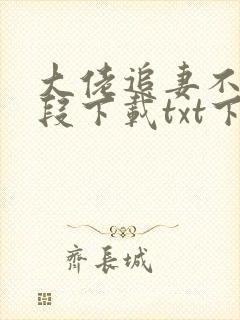 大佬追妻不
段下载txt下
齐長城